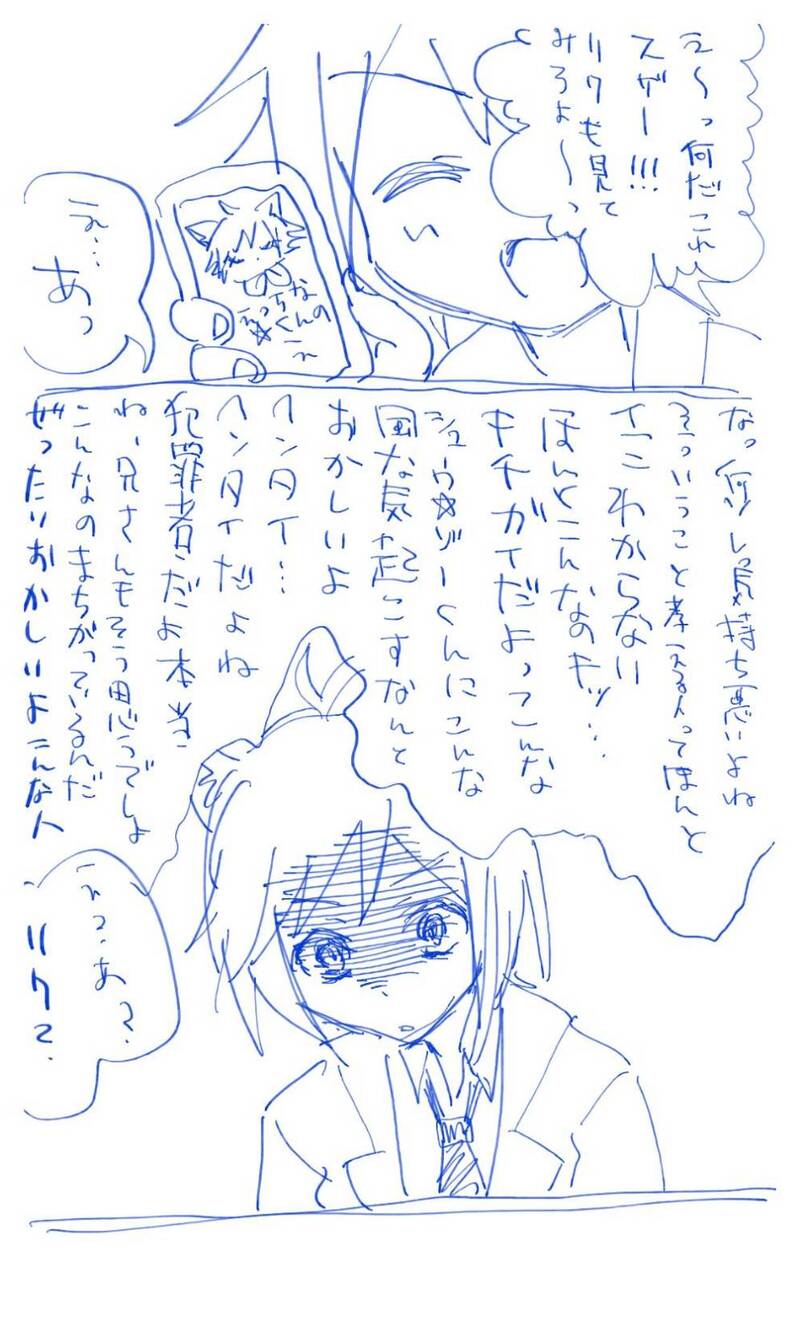 え〜っ何だこれ
スゲー!!!
リクも見て
みろよ〜っ
なっちくんの
えっち☆
え…
あっ
なっ何ソレ気持ち悪いよね
そういうこと考える人ってほんと
わからない
ほんとこんなのキッ…
キチガイだよってこんな
シュウ☆ゾーくんにこんな
風な気起こすなんて
おかしいよ
ヘンタイ…
ヘンタイだよね
犯罪者だよ本当
ねー兄さんもそう思うでしょ
こんなのまちがっているんだ
ぜったいおかしいよこんな人
えっ、あ?
リク?